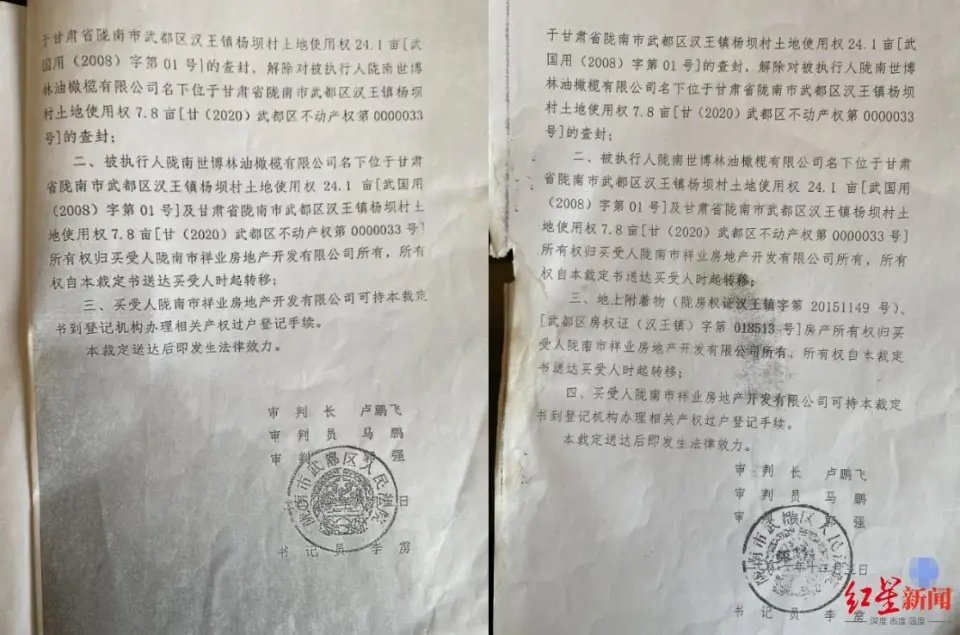 于甘肃省陇南市武都区汉王镇杨坝村土地使用权 24.1 亩[武
国用（2008）字第 01 号]的查封，解除对被执行人陇南世博
林油橄榄有限公司名下位于甘肃省陇南市武都区汉王镇杨坝
村土地使用权 7.8 亩[甘（2020）武都区不动产权第 0000033
号]的查封；
二、被执行人陇南世博林油橄榄有限公司名下位于甘肃
省陇南市武都区汉王镇杨坝村土地使用权 24.1 亩[武国用
（2008）字第 01 号]及甘肃省陇南市武都区汉王镇杨坝村土
地使用权 7.8 亩[甘（2020）武都区不动产权第 0000033 号]
所有权归买受人陇南市祥业房地产开发有限公司所有，所有
权自本裁定书送达买受人时起转移；
三、买受人陇南市祥业房地产开发有限公司可持本裁定
书到登记机构办理相关产权过户登记手续。
本裁定送达后即发生法律效力。
审 判 长 卢鹏飞
审 判 员 马 鹏
审 判 强
陇南市武都区人民法院
日
书 记 员 李 雳
于甘肃省陇南市武都区汉王镇杨坝村土地使用权 24.1 亩[武
国用（2008）字第 01 号]的查封，解除对被执行人陇南世博
林油橄榄有限公司名下位于甘肃省陇南市武都区汉王镇杨坝
村土地使用权 7.8 亩[甘（2020）武都区不动产权第 0000033
号]的查封；
二、被执行人陇南世博林油橄榄有限公司名下位于甘肃
省陇南市武都区汉王镇杨坝村土地使用权 24.1 亩[武国用
（2008）字第 01 号]及甘肃省陇南市武都区汉王镇杨坝村土
地使用权 7.8 亩[甘（2020）武都区不动产权第 0000033 号]
所有权归买受人陇南市祥业房地产开发有限公司所有，所有
权自本裁定书送达买受人时起转移；
三、地上附着物（陇房权证汉王镇字第 20151149 号）、
[武都区房权证（汉王镇）字第 018513 号]房产所有权归买
受人陇南市祥业房地产开发有限公司所有，所有权自本裁定
书送达买受人时起转移；
四、买受人陇南市祥业房地产开发有限公司可持本裁定
书到登记机构办理相关产权过户登记手续。
本裁定送达后即发生法律效力。
审 判 长 卢鹏飞
审 判 员 马 鹏
审 强
陇南市武都区人民法院
年十 月 日
书 记 员 李
红星新闻
深度 态度 温度